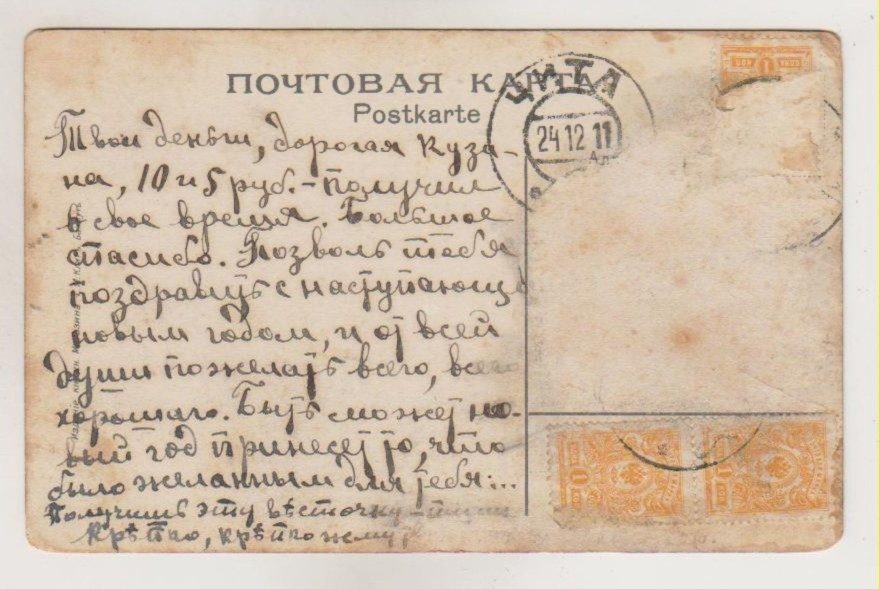 ПОЧТОВАЯ КАРТА
Postkarte
ЧИТА
24 12 11
Твои деньги, дорогая Кузи-
на, 10 и 5 руб. – получил
в свое время. Большое
спасибо. Позволь тебя
поздравить с наступающ
новым годом, и от всей
души пожелать всего, всего
хорошаго. Быть может но-
вый год принесет то, что
было желанным для тебя:...
Получишь эту вѣсточку – пиши
Крѣпко, крѣпко жму,